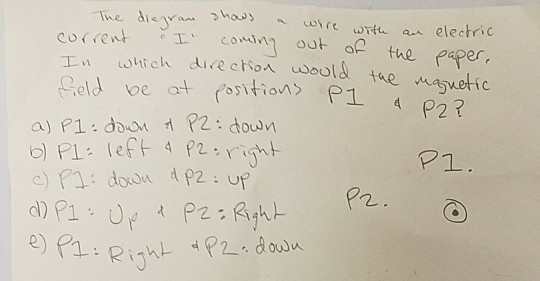 The diagram shows a wire with an electric
current "I" coming out of the paper.
In which direction would the magnetic
field be at positions P1 & P2?
a) P1: down & P2: down
b) P1: left & P2: right
c) P1: down & P2: up
d) P1: Up & P2: Right
e) P1: Right & P2: down
P1.
P2.